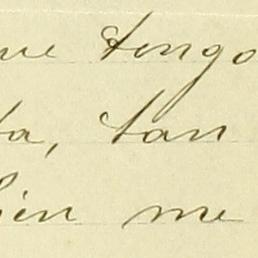 ue tengo
ta, tan
bien me